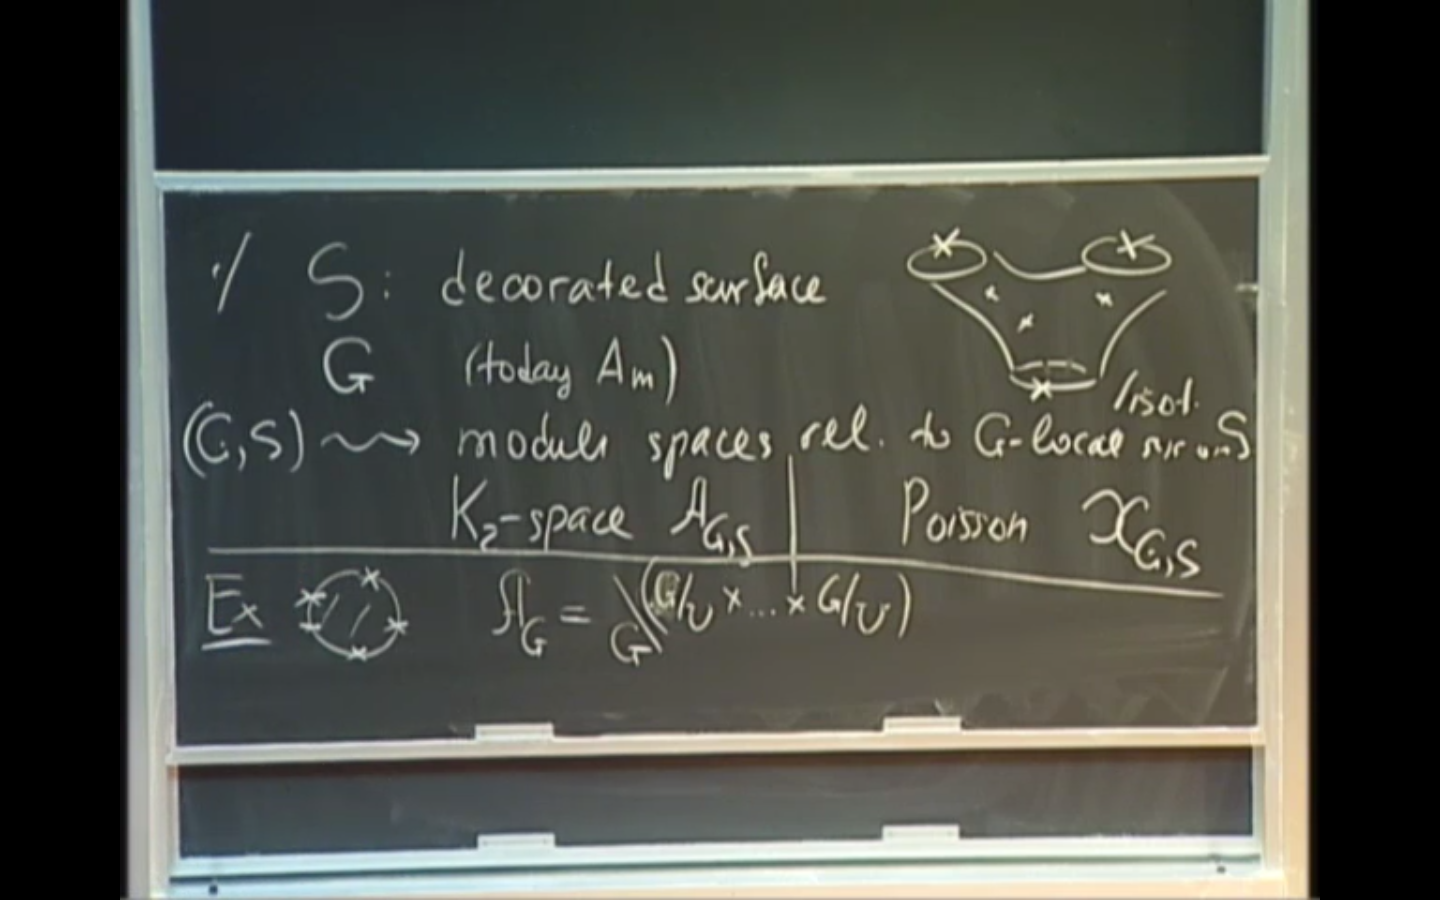 1/ S: decorated surface
G (today Am)
/isot.
(G,S) ⇝ moduli spaces rel. to G-local on S
K₂-space A_{G,S} | Poisson X_{G,S}
Ex A_G = G\(G/U × ... × G/U)